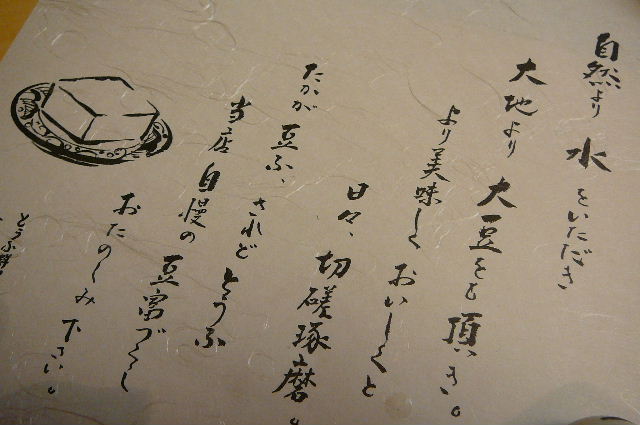 自然より 水をいただき
大地より 大豆をも 頂き。
より美味しく おいしくと
日々、切磋琢磨。
たかが 豆ふ、されど とうふ
当店自慢の 豆富づくし
おたのしみ下さい。
とうふ